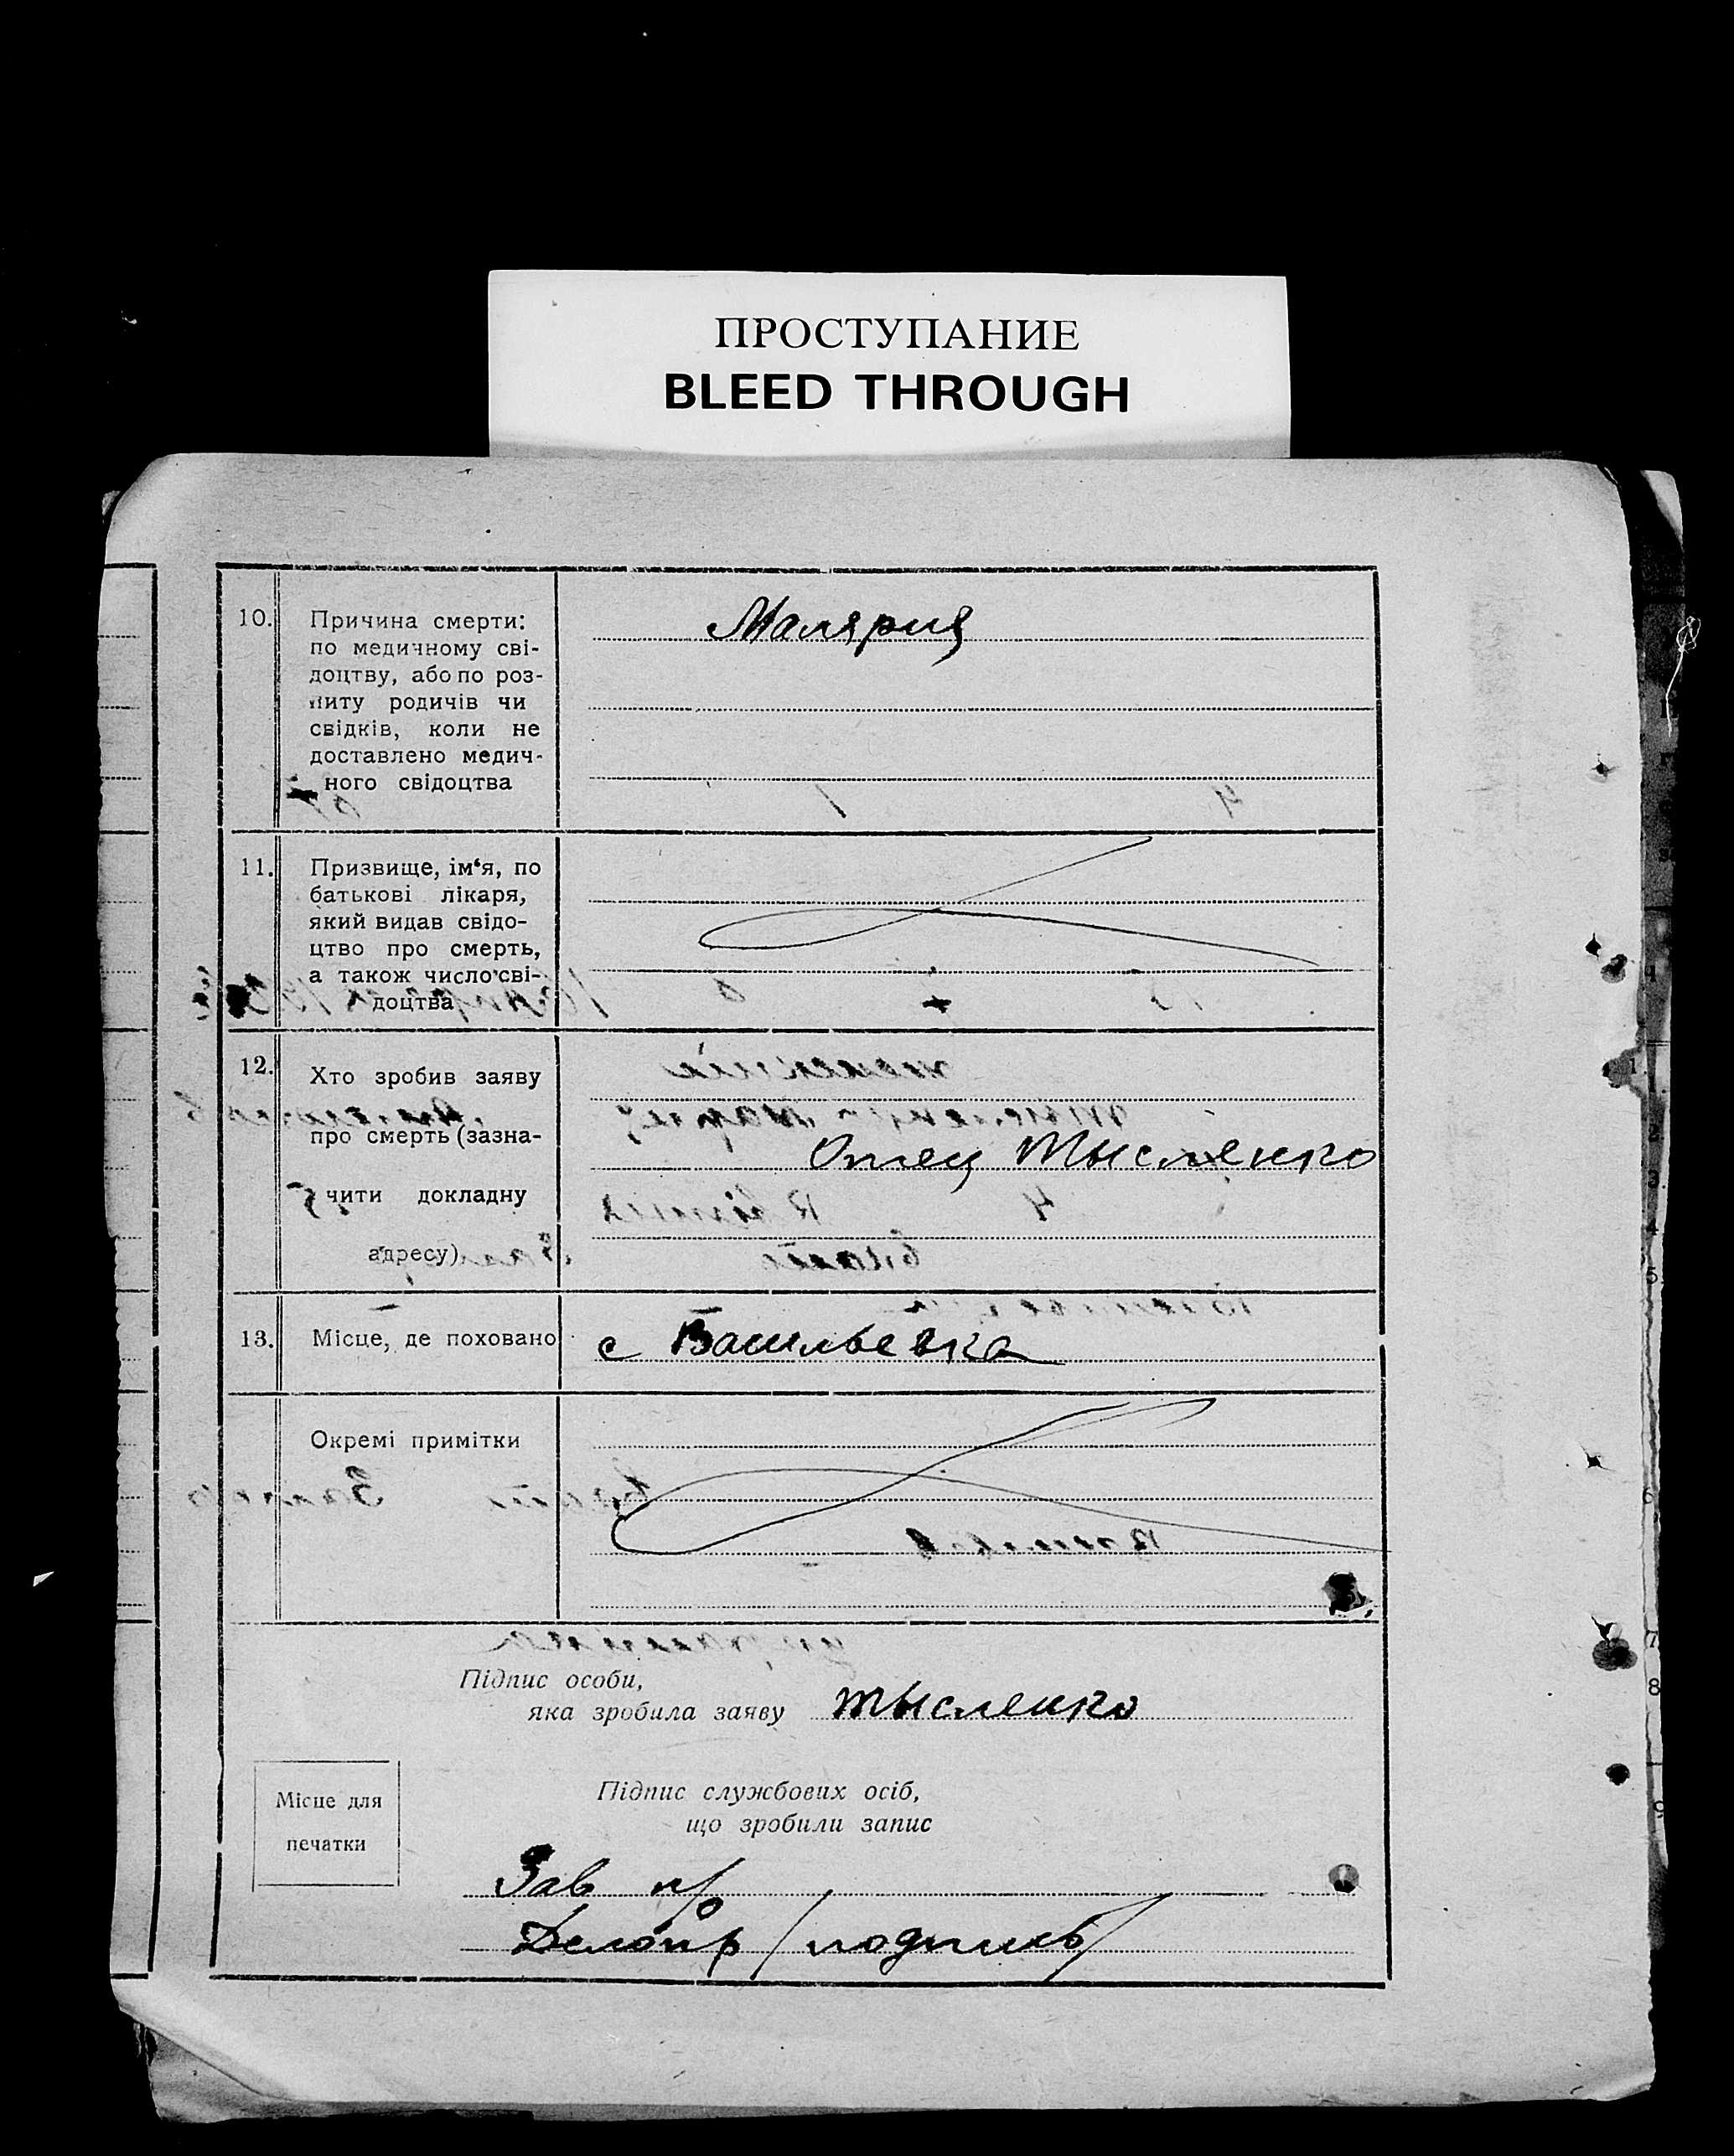 ПРОСТУПАНИЕ
BLEED THROUGH
10. Причина смерти:
по медичному сві-
доцтву, або по роз-
питу родичів чи
свідків, коли не
доставлено медич-
ного свідоцтва
Малярия
11. Призвище, ім‘я, по
батькові лікаря,
який видав свідо-
цтво про смерть,
а також число сві-
доцтва
12. Хто зробив заяву
про смерть (зазна-
чити докладну
адресу)
Отец Тысленко
13. Місце, де поховано
с Васильевка
Окремі примітки
Підпис особи,
яка зробила заяву Тысленко
Місце для
печатки
Підпис службових осіб,
що зробили запис
Зав п/о
Делопр /подпись/